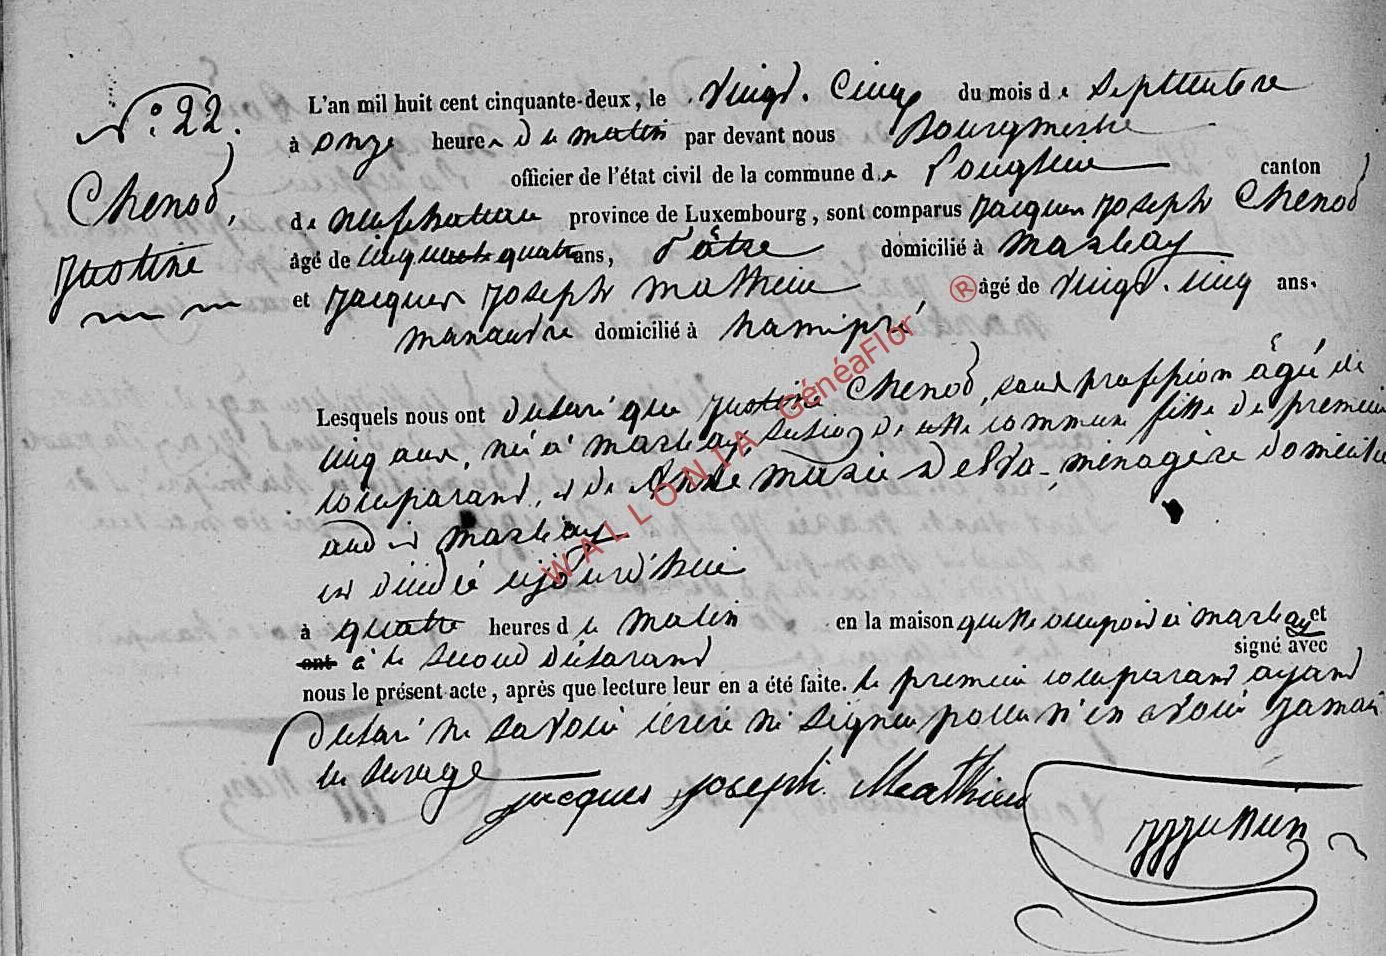 N° 22.
Chenod,
Justine
L'an mil huit cent cinquante-deux, le vingt cinq du mois de Septembre
à onze heures du matin par devant nous Bourgmestre
officier de l'état civil de la commune de Longlier canton
de neufchateau province de Luxembourg, sont comparus Jacques Joseph Chenod
âgé de cinquante quatre ans, Pâtre domicilié à Marbay
et Jacques Joseph Mathieu âgé de vingt-cinq ans.
manœuvre domicilié à hamipré
Lesquels nous ont déclaré que Justine Chenod, sans profession âgé de
cinq ans, né à Marbay, de cette commune fille du premier
comparant, et de Anne Marie, ménagère domicilié
audit Marbay
est décédé aujourd'hui
à quatre heures du matin en la maison quelle occupoit à Marbay et
ont à le second déclarant signé avec
nous le présent acte, après que lecture leur en a été faite. le premier comparant ayant
déclaré ne savoir écrire ni signer pour n'en avoir jamais
eu l'usage
Jacques Joseph Mathieu
WALLONIA GénéaFlor ®